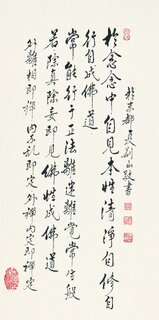 於念念中自見本性清淨自修自
行自成佛道
常能行于正法離迷離覺常生般
若除真除妄即見性成佛道
外離相即禪內不亂即定外禪內定即禪定
於京都
敬書